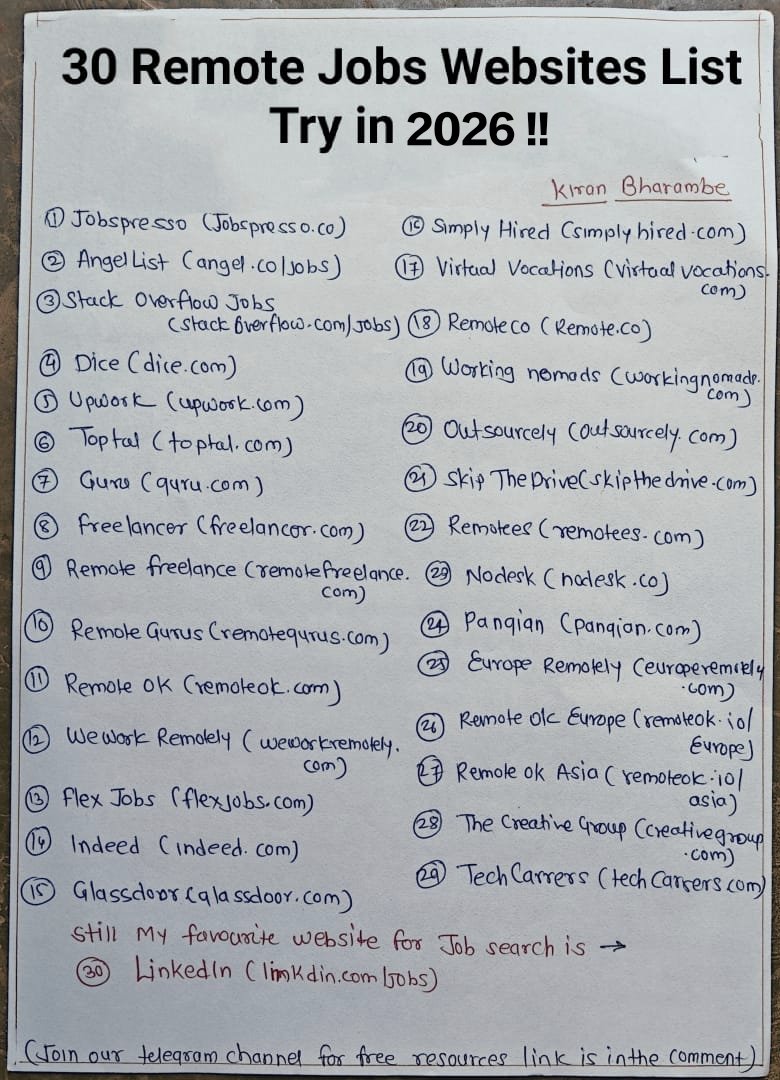 30 Remote Jobs Websites List
Try in 2026 !!
Kiran Bharambe
① Jobspresso (Jobspresso.co)
② AngelList (angel.co/jobs)
③ Stack Overflow Jobs
(stack overflow.com/jobs)
④ Dice (dice.com)
⑤ Upwork (upwork.com)
⑥ Toptal (toptal.com)
⑦ Guru (guru.com)
⑧ freelancer (freelancer.com)
⑨ Remote freelance (remotefreelance.
com)
⑩ Remote Gurus (remotegurus.com)
⑪ Remote OK (remoteok.com)
⑫ We Work Remotely (weworkremotely.
com)
⑬ Flex Jobs (flexjobs.com)
⑭ Indeed (indeed.com)
⑮ Glassdoor (glassdoor.com)
⑯ Simply Hired (simplyhired.com)
⑰ Virtual Vocations (virtual vocations.
com)
⑱ Remote co (Remote.co)
⑲ Working nomads (workingnomads.
com)
⑳ Outsourcely (outsourcely.com)
㉑ Skip The Drive (skipthedrive.com)
㉒ Remotees (remotees.com)
㉓ Nodesk (nodesk.co)
㉔ Pangian (pangian.com)
㉕ Europe Remotely (europeremotely
.com)
㉖ Remote ok Europe (remoteok.io/
Europe)
㉗ Remote ok Asia (remoteok.io/
asia)
㉘ The Creative Group (creativegroup
.com)
㉙ Tech Carrers (tech Carrers.com)
still My favourite website for Job search is →
㉚ LinkedIn (linkdin.com/jobs)
(Join our telegram channel for free resources link is in the comment)